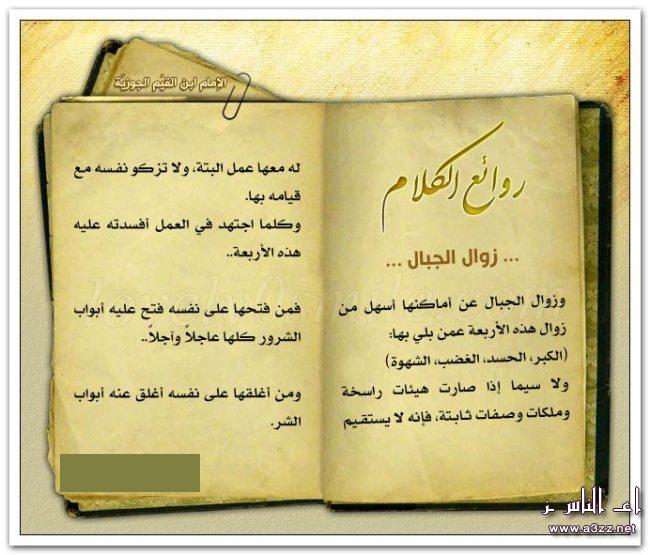 الإمام ابن القيّم الجوزيّة
روائع الكلام
... زوال الجبال ...
وزوال الجبال عن أماكنها أسهل من
زوال هذه الأربعة عمن بلي بها:
(الكبر، الحسد، الغضب، الشهوة)
ولا سيما إذا صارت هيئات راسخة
وملكات وصفات ثابتة، فإنه لا يستقيم
له معها عمل البتة، ولا تزكو نفسه مع
قيامه بها.
وكلما اجتهد في العمل أفسدته عليه
هذه الأربعة..
فمن فتحها على نفسه فتح عليه أبواب
الشرور كلها عاجلاً وآجلاً..
ومن أغلقها على نفسه أغلق عنه أبواب
الشر.
الناس
www.a3zz.net